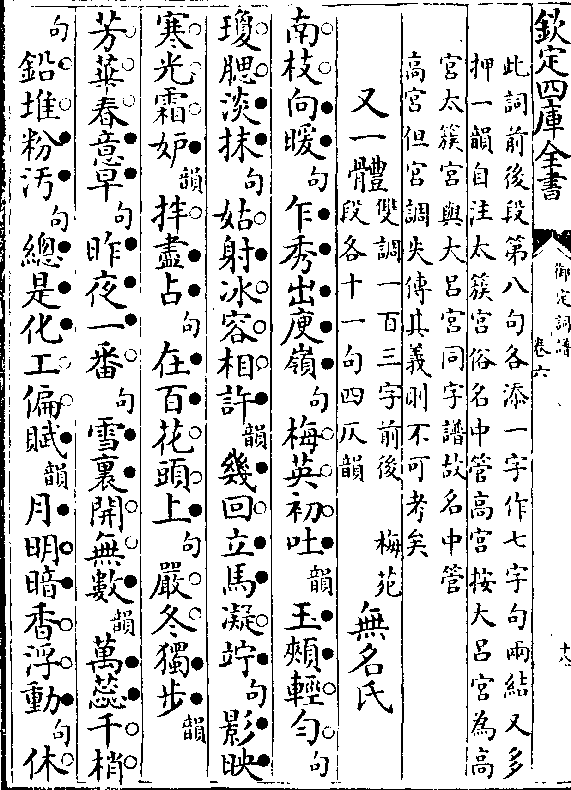 欽定四庫全書
御定詞譜
卷六
十八
此詞前後段第八句各添一字作七字句兩結又多
押一韻自注太簇宮俗名中管高宮按大呂宮為高
宮太簇宮與大呂宮同字譜故名中管
高宮但宮調失傳其義則不可考矣
又一體
雙調一百三字前後
段各十一句四仄韻
梅苑
無名氏
南枝向暖句乍秀出庾嶺句梅英初吐韻玉頰輕勻句
瓊腮淡抹句姑射冰容相許韻幾回立馬凝竚句影映
寒光霜妒韻拌盡占句在百花頭上句嚴冬獨步韻
芳華春意早句昨夜一番句雪裏開無數韻萬蕊千梢
句鉛堆粉汚句總是化工偏賦韻月明暗香浮動句休